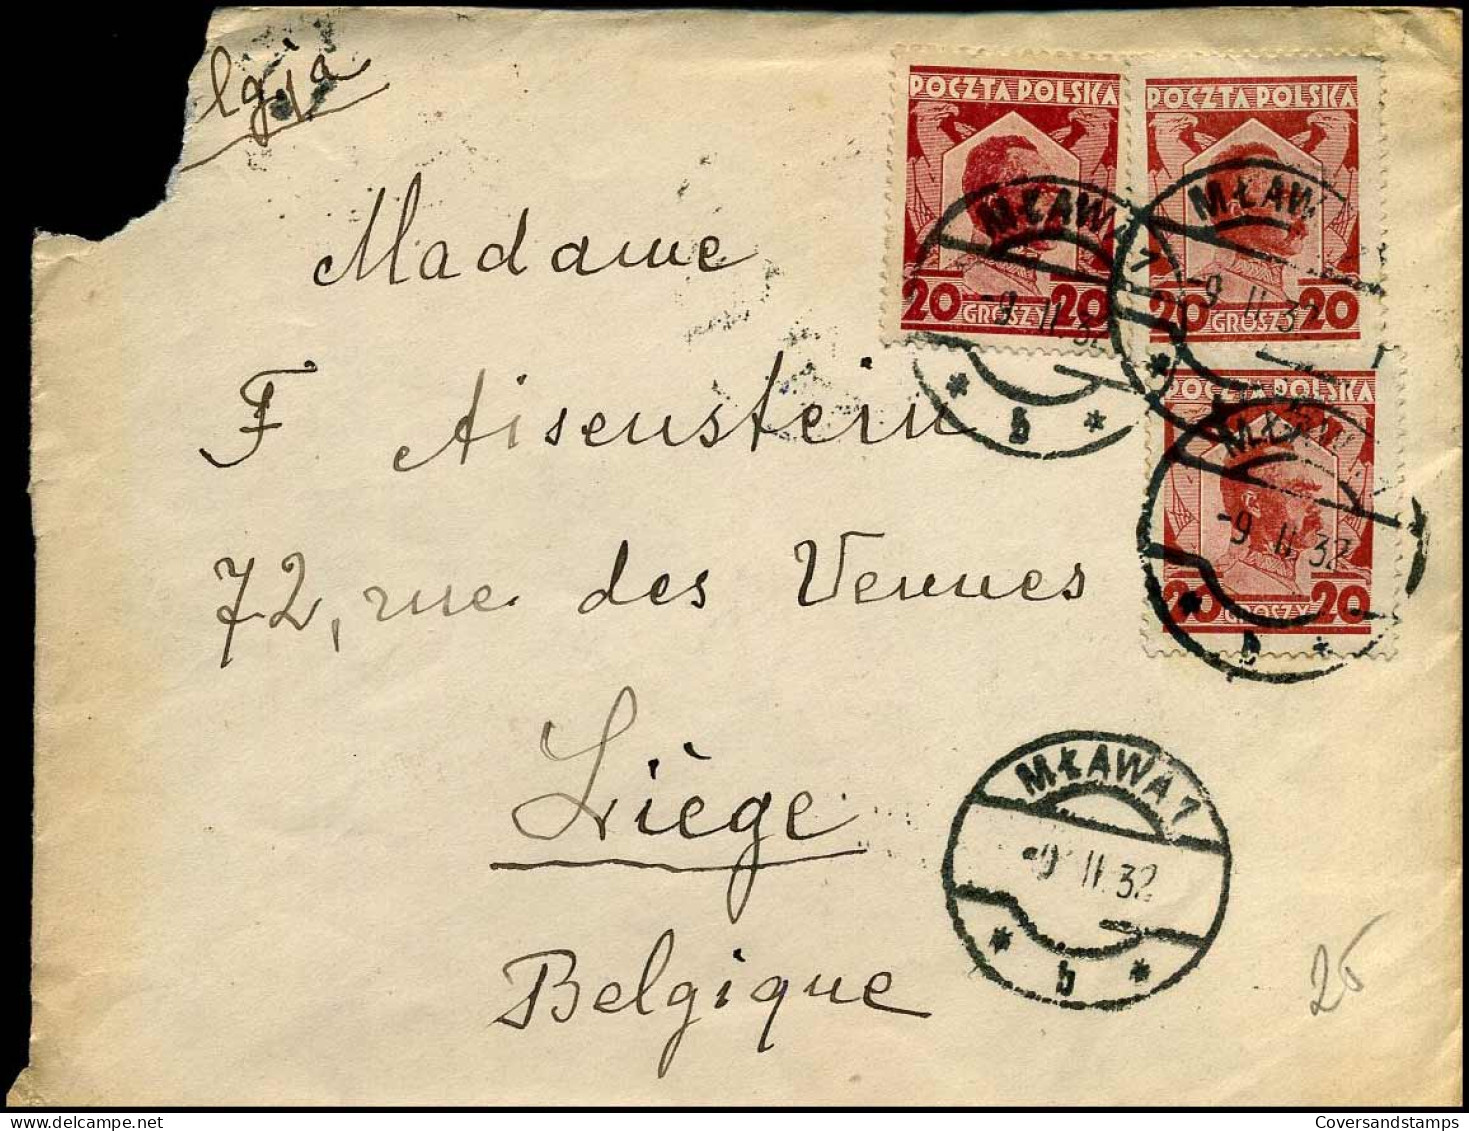 lgja
Madame
F Aisenstein
72, rue des Vennes
Liège
Belgique
POCZTA POLSKA
20 GROSZY 20
POCZTA POLSKA
20 GROSZY 20
POCZTA POLSKA
20 GROSZY 20
MŁAWA 1
-9 II 32
b
MŁAWA 1
-9 II 32
MŁAWA 1
-9 II 32
b
MŁAWA 1
-9 II 32
* b *
25
Coversandstamps